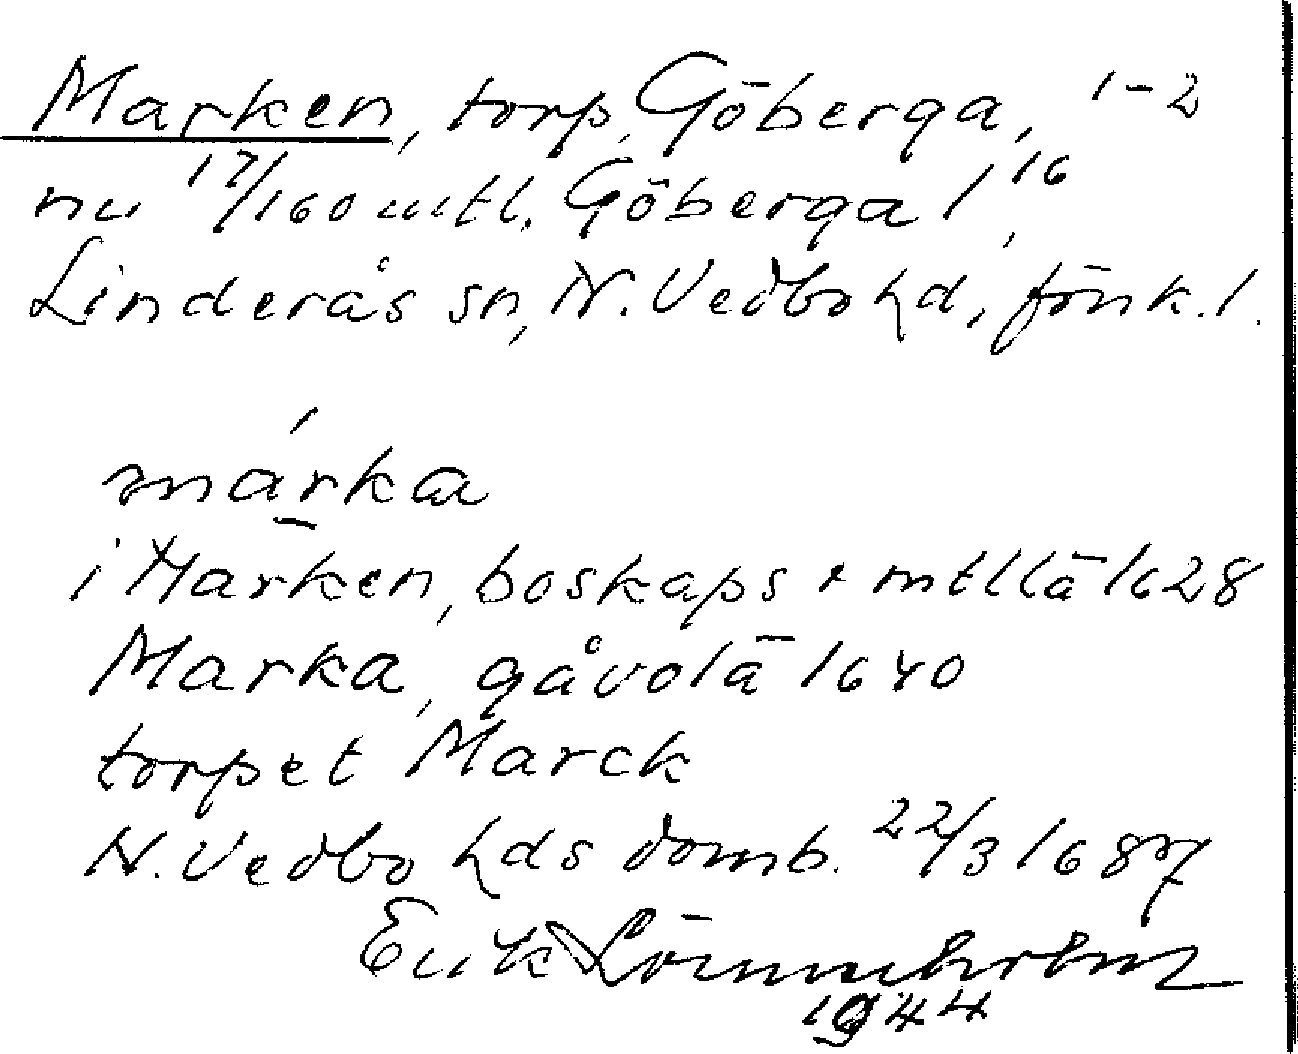 Marken, torp, Göberga, 1-2
nu 17/160 mtl. Göberga 1,16
Linderås sn, N. Vedbo hd, Jönk. l.
márka
i Marken, boskaps o mtllä 1628
Marka, gåvolä 1640
torpet Marck
N. Vedbo hds domb. 22/3 1687
Erik Lönnerholm
1944